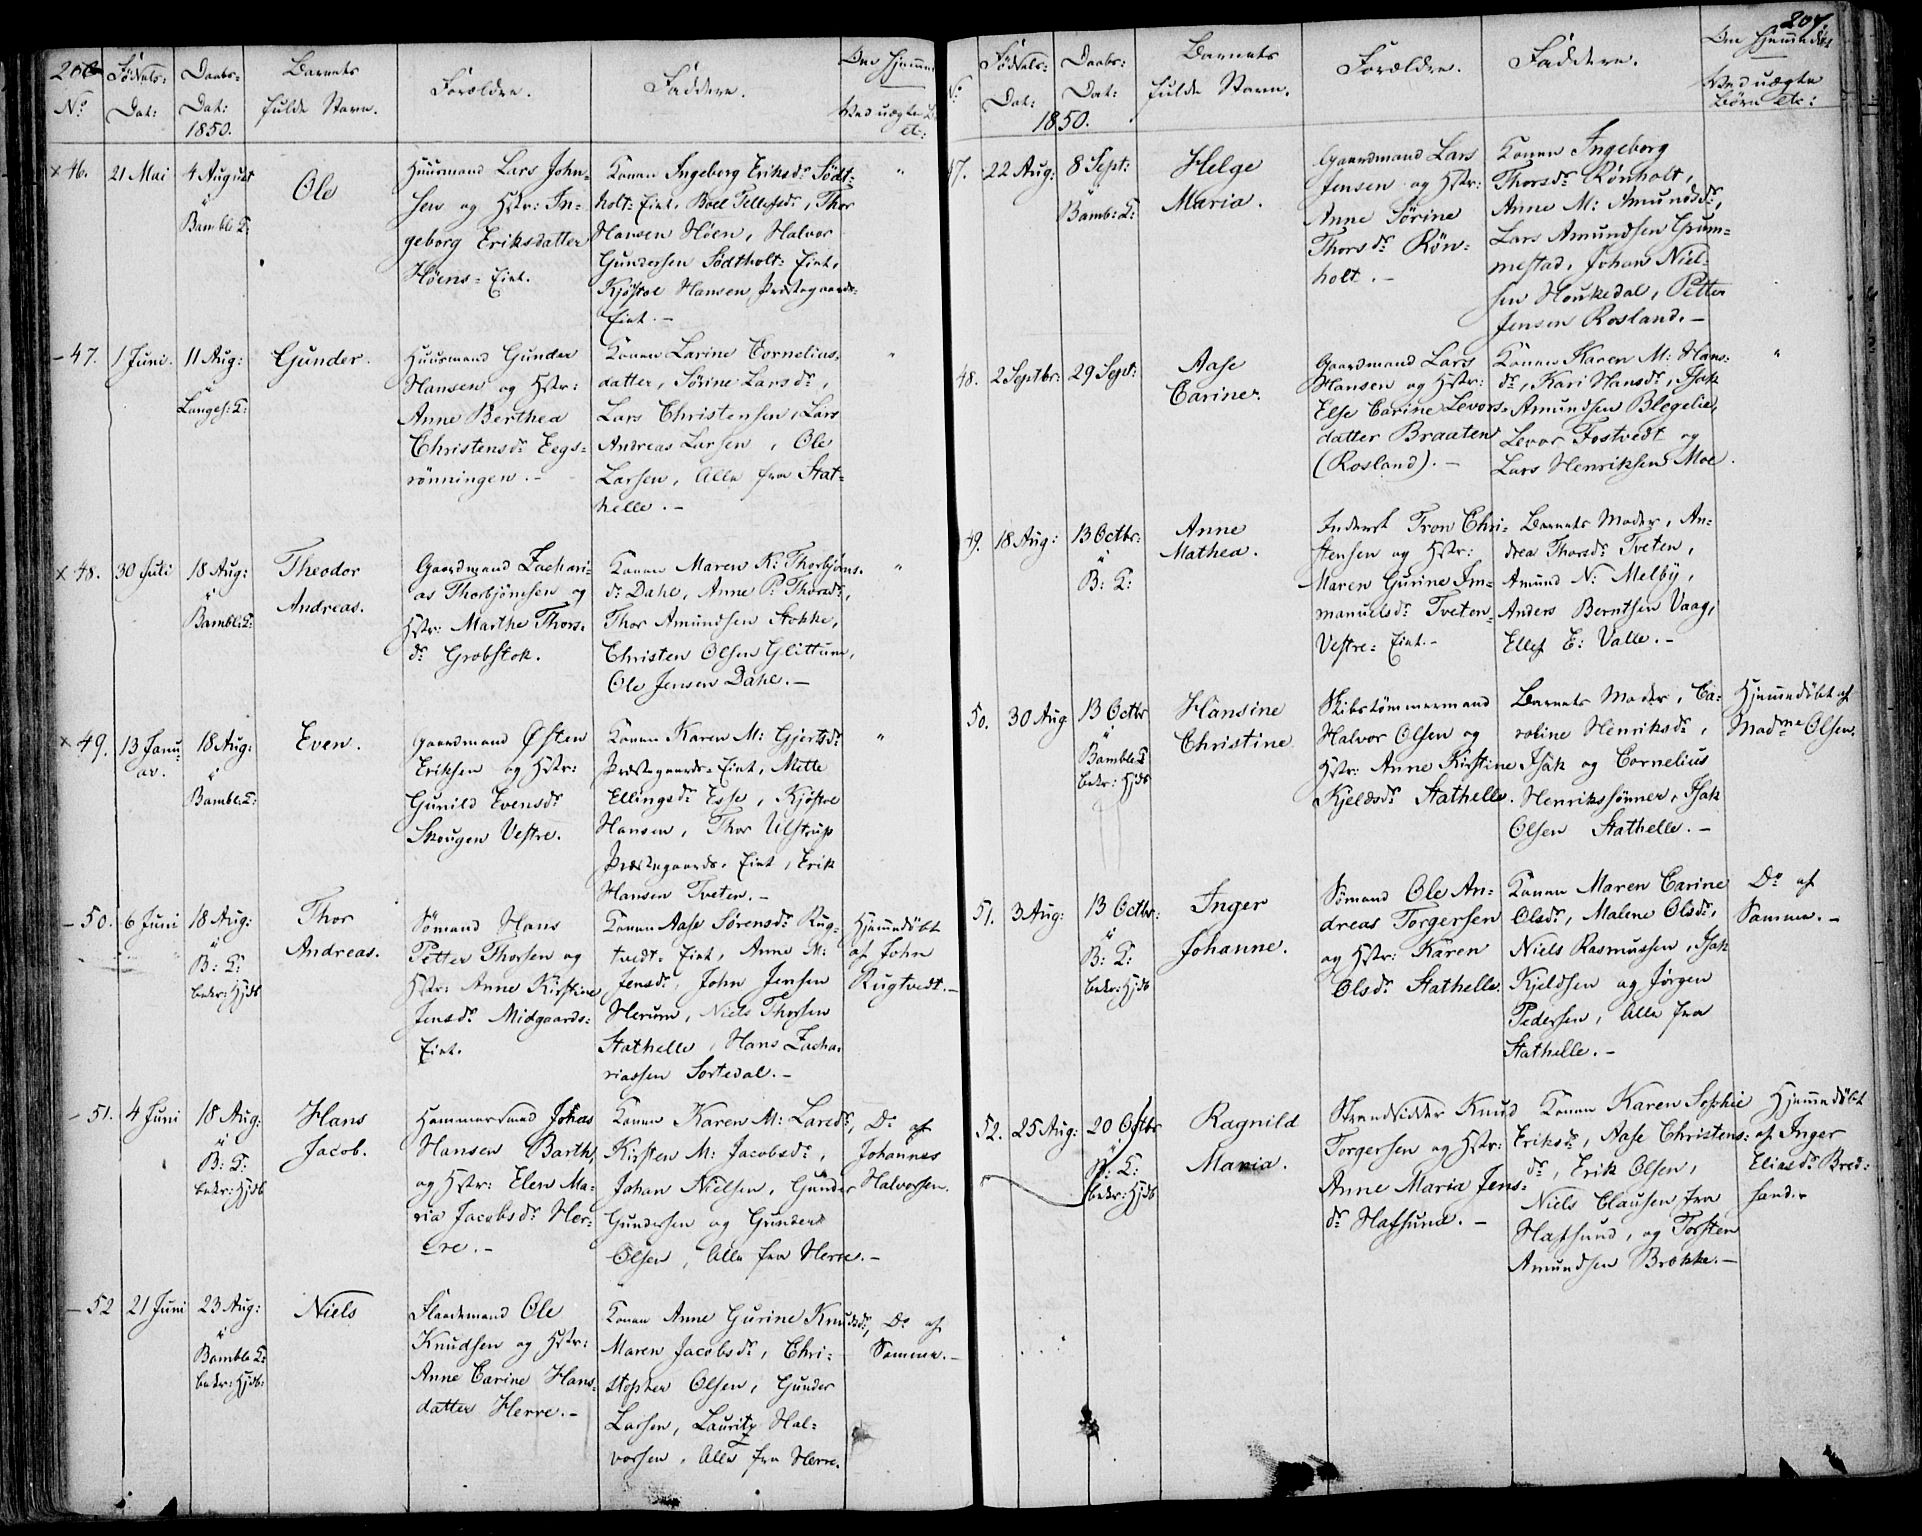 206
Fødsels-
Daabs-
Barnets
Forældre.
Faddere.
Om Hjemme
No
Dat:
Dat:
1850.
fulde Navn.
Ved uægte B.
etc:
× 46.
21 Mai
4 August
i
Bamble K:
Ole
Huusmand Lars John-
sen og Hstr: In-
geborg Eriksdatter
Høens-Eiet.
Konen Ingeborg Eriksdr Södt-
holt-Eiet, Boel Tellefsdr, Thor
Hansen Höen, Halvor
Gundersen Södtholt-Eiet,
Kjöstol Hansen Præstegaards-
Eiet.-
"
- 47.
1 Juni.
11 Aug:
i
Langes: K:
Gunder.
Huusmand Gunder
Hansen og Hstr:
Anne Berthea
Christensdr Eegs-
rönningen.-
Konen Larine Cornelias-
datter, Sörine Larsdr,
Lars Christensen, Lars
Andreas Larsen, Ole
Larsen, Alle fra Stat-
helle.-
"
× 48.
30 Juli
18 Aug:
i
Bambl: K:
Theodor
Andreas.
Gaardmand Zachari-
as Thorbjörnsen og
Hstr: Marthe Thors-
dr Grobstok.
Konen Maren K: Thorbjörns-
dr Dahe, Anne P: Thorsdr,
Thor Amundsen Stokke,
Christen Olsen Glittum,
Ole Jensen Dahe.-
"
× 49.
13 Janu-
ar.
18 Aug:
i
Bambl: K:
Even.
Gaardmand Østen
Eriksen og Hstr:
Gunild Evensdr
Skougen Vestre.
Konen Karen M: Gjertsdr
Præstegaards-Eiet, Mette
Ellingsdr Esse, Kjöstol
Hansen, Thor Ulstrup
Præstegaards-Eiet, Erik
Hansen Tveten.-
"
- 50.
6 Juni
18 Aug:
i
B: K:
bekr: Hjdb
Thor
Andreas.
Sömand Hans
Petter Thorsen og
Hstr: Anne Kirstine
Jensdr Midgaards-
Eiet.
Konen Aase Sørensdr Rug-
tvedt-Eiet, Anne M:
Jensdr, John Jensen
Herum, Niels Thorsen
Stathelle, Hans Zacha-
riassen Sortedal.-
Hjemmedöbt
af John
Rugtvedt.-
- 51.
4 Juni
18 Aug:
i
B: K:
bekr: Hjdb
Hans
Jacob.
Hammersmed Johas
Hansen Barth,
og Hstr: Elen Ma-
ria Jacobsdr Her-
re.-
Konen Karen M: Larsdr,
Kirsten M: Jacobsdr,
Johan Nielsen, Gunder
Gundersen og Gunder
Olsen, Alle fra Herre.-
Do af
Johannes
Halvorsen.
- 52
21 Juni
23 Aug:
i
Bamble K:
bekr: Hjdb:
Niels
Ole
Knudsen og Hstr:
Anne Carine Hans-
datter Herre.-
Konen Anne Gurine Knudsdr,
Maren Jacobsdr, Chri-
stopher Olsen, Gunder
Larsen, Lauritz Hal-
vorsen, Alle fra Herre.
Do af
Samme.-
207.
No
Fødsels-
Dat:
Daabs-
Dat:
1850.
Barnets
fulde Navn.
Forældre.
Faddere.
Om Hjemmedöbt
Ved uægte
Börn etc:
47.
22 Aug:
8 Sept:
i
Bamb: K:
Helge
Maria.
Gaardmand Lars
Jensen og Hstr:
Anne Sörine
Thorsdr Rön-
holt.-
Konen Ingeborg
Thorsdr Rönholt,
Anne M: Amundsdr,
Lars Amundsen Grum-
mestad, Johan Niel-
sen Houkedal, Petter
Jensen Rosland.-
48.
2 Septbr:
29 Sept:
Aase
Carine.
Gaardmand Lars
Hansen og Hstr:
Else Carine Levors-
datter Braaten
(Rosland).-
Konen Karen M: Hans-
dr, Kari Hansdr, Isak
Amundsen Blegelie,
Levor Fostvedt og
Lars Henriksen Moe.
"
49.
18 Aug:
13 Octbr:
i
B: K:
Anne
Mathea.
Inderst Tron Chri-
stensen og Hstr:
Maren Gurine Im-
manuelsdr Tveten-
Vestre-Eiet.-
Barnets Moder, An-
drea Thorsdr Tveten,
Amund N: Melby,
Anders Berntsen Vaag,
Ellef E: Valle.-
50.
30 Aug
13 Octbr
i
Bamble K
bekr: Hjdb
Hansine
Christine.
Skibstömmermand
Halvor Olsen og
Hstr: Anne Kirstine
Kjeldsdr Stathelle.
Barnets Moder, Ca-
roline Henriksdr,
Isak og Cornelius
Henrikssönner, Isak
Olsen Stathelle.-
Hjemmedöbt af
Madme Olsen.
51.
3 Aug:
13 Octbr:
i
B: K:
bekr: Hjdb
Inger
Johanne.
Sömand Ole An-
dreas Torgersen
og Hstr: Karen
Olsdr Stathelle.
Konen Maren Carine
Olsdr, Malene Olsdr,
Niels Rasmussen, Isak
Kjeldsen og Jörgen
Pedersen, Alle fra
Stathelle.-
Do af
Samme.-
52.
25 Aug:
20 Octbr
i
B: K:
bekr: Hjdb
Ragnild
Maria.
Strandsidder Knud
Torgersen og Hstr:
Anne Maria Jens-
dr Hafsund.-
Konen Karen Sophie
Eriksdr, Aase Christens-
dr, Erik Olsen,
Niels Clausen fra
Hafsund, og Torsten
Amundsen Brokke.-
Hjemmedöbt
af Inger
Eliasdr Bred-
sand.-